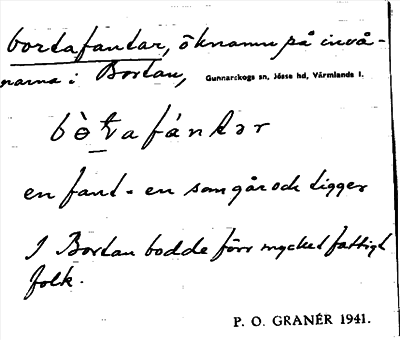 bortafantar, öknamn på invå-
narna i Bortan, Gunnarskogs sn, Jösse hd, Värmlands l.
bò̱ṭafántər
en fant = en som går och tigger
I Bortan bodde förr mycket fattigt
folk.
P. O. GRANÉR 1941.